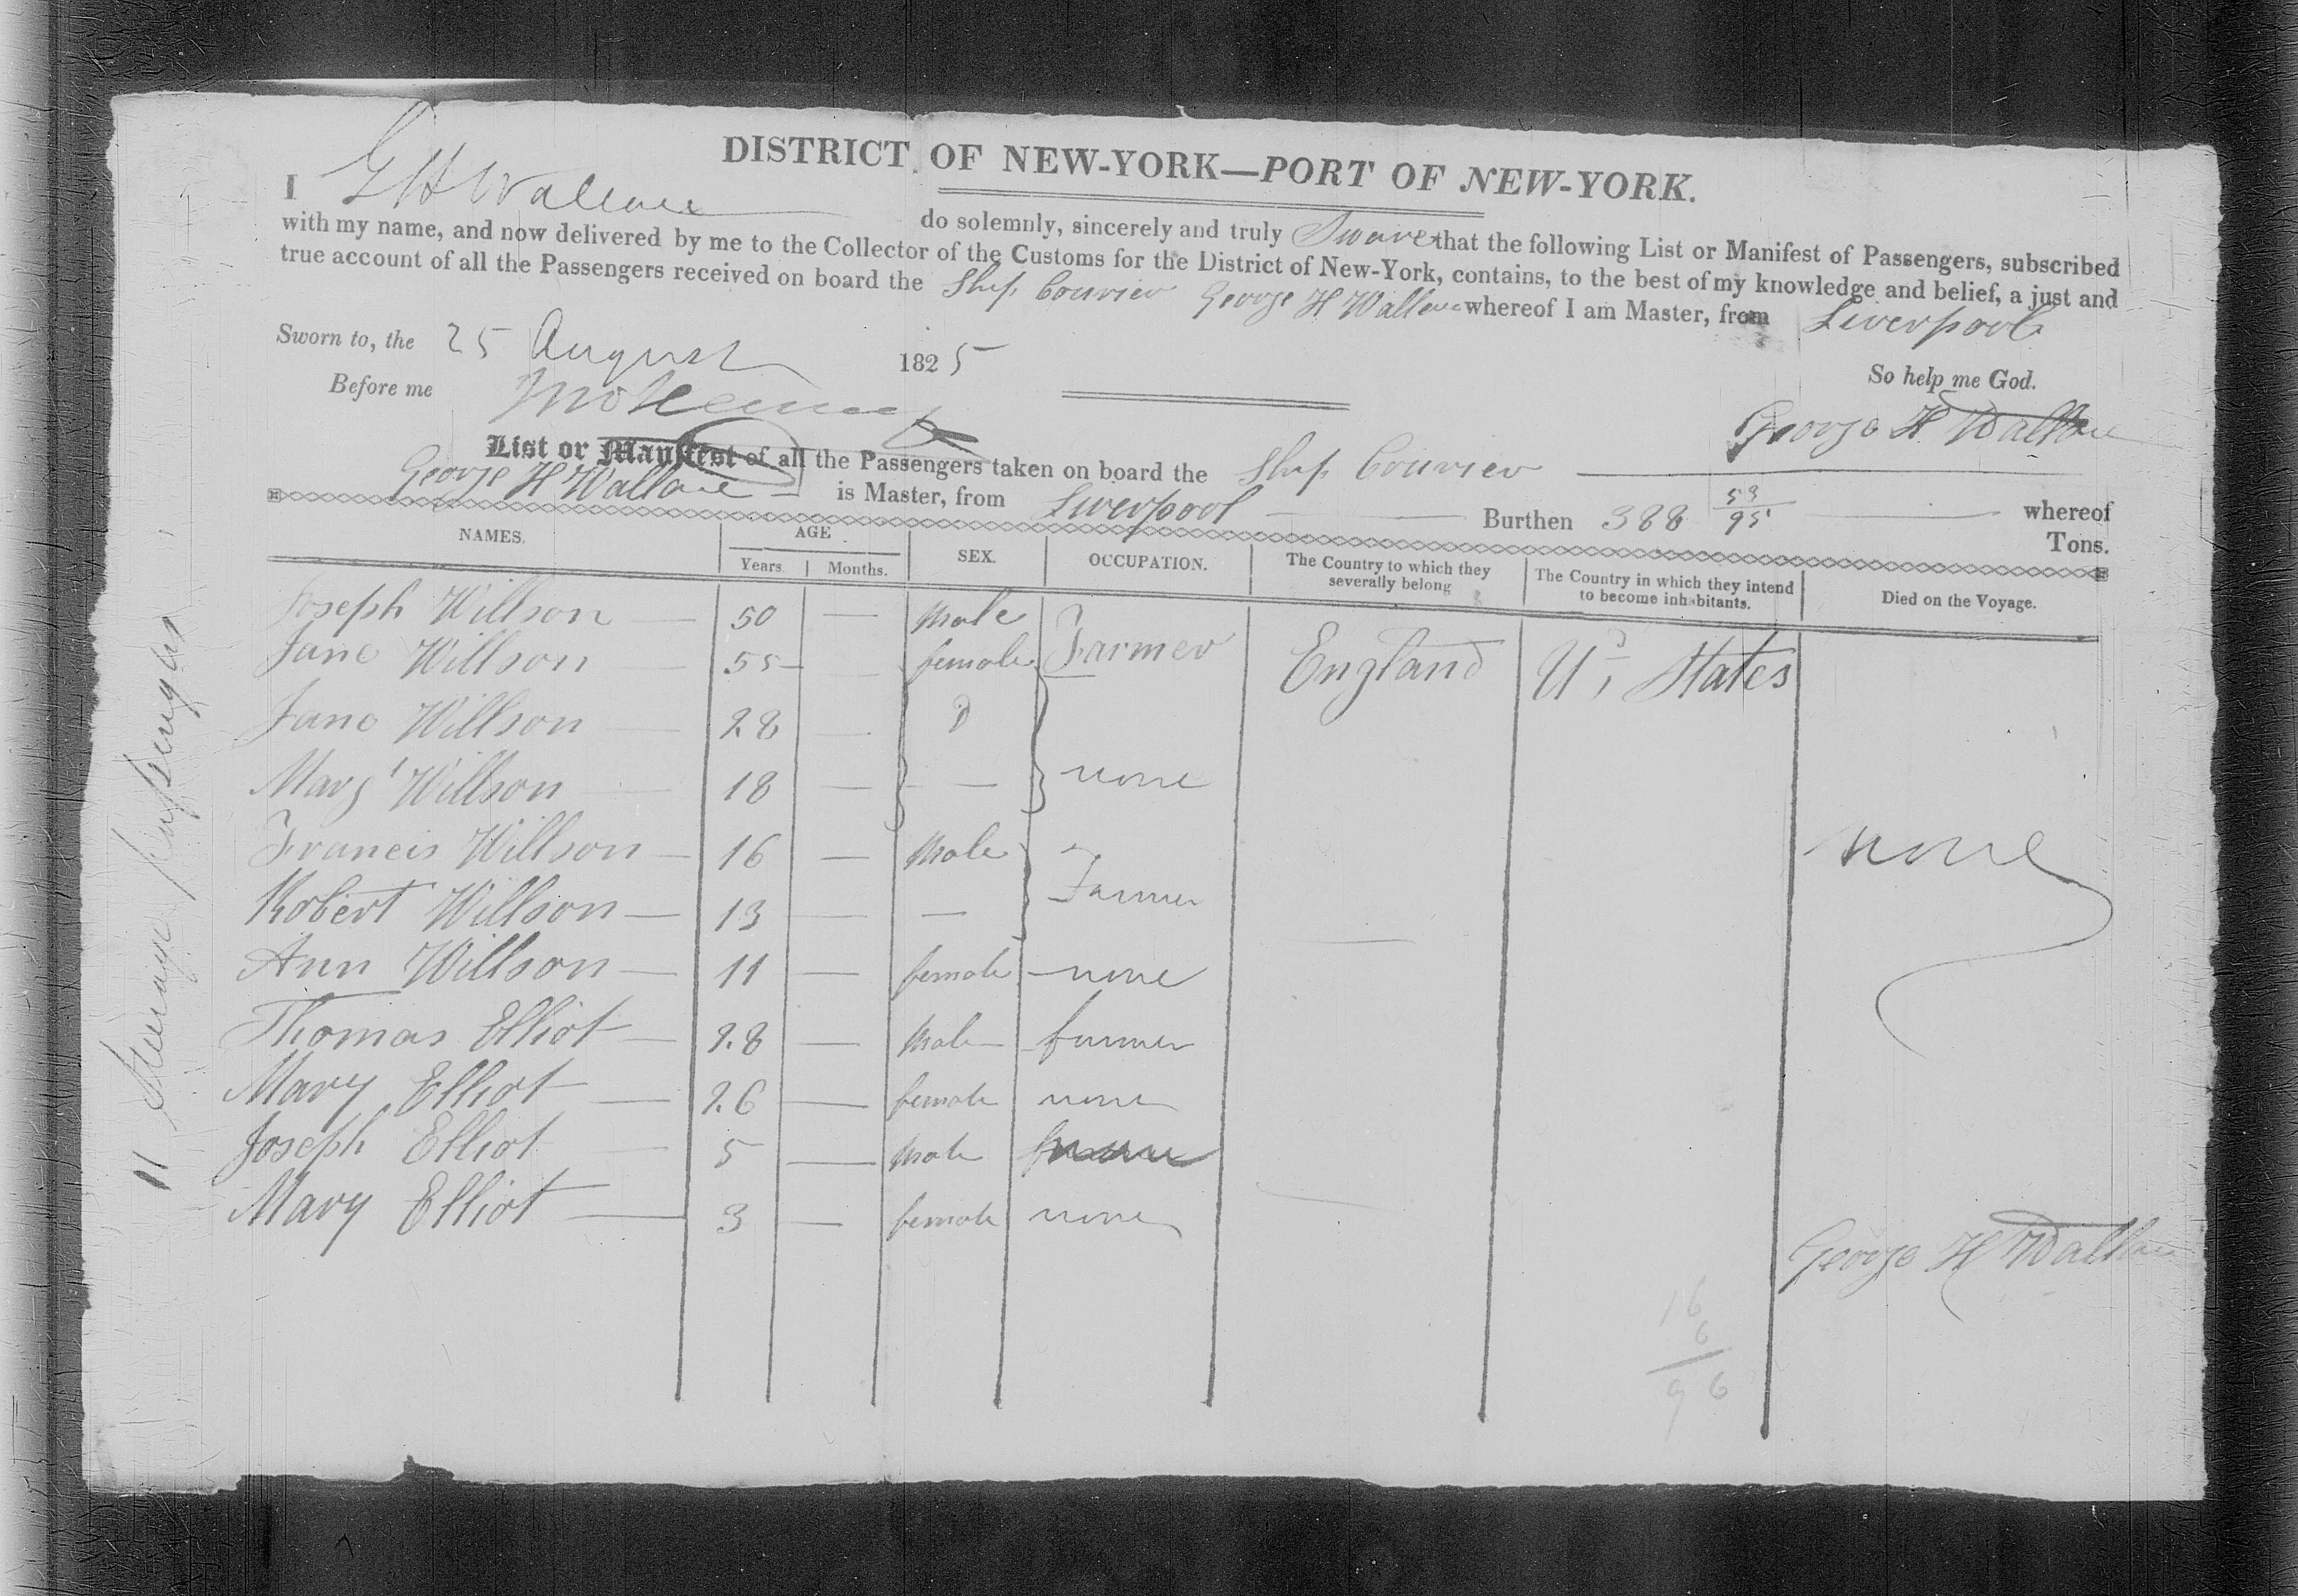 DISTRICT OF NEW-YORK—PORT OF NEW-YORK.
I G H Wallace do solemnly, sincerely and truly Sware that the following List or Manifest of Passengers, subscribed
with my name, and now delivered by me to the Collector of the Customs for the District of New-York, contains, to the best of my knowledge and belief, a just and
true account of all the Passengers received on board the Ship Courier George H Wallace whereof I am Master, from Liverpool
Sworn to, the 25 August 1825
So help me God.
Before me
George H Wallace
List or Manifest of all the Passengers taken on board the Ship Courier whereof
George H Wallace is Master, from Liverpool Burthen 388 53/95 Tons.
NAMES. AGE SEX. OCCUPATION. The Country to which they severally belong The Country in which they intend to become inhabitants. Died on the Voyage.
Years Months.
Joseph Willson — 50 — Male Farmer England U, States
Jane Willson — 55 — female
Jane Willson — 28 — D
Mary Willson — 18 — — none
Francis Willson — 16 — Male Farmer none
Robert Willson — 13 — —
Ann Willson — 11 — female — none
Thomas Elliot — 28 — Male — farmer
Mary Elliot — 26 — female none
Joseph Elliot — 5 — Male
Mary Elliot — 3 — female none
George H Wallace
16
6
96
11 Steerage passengers